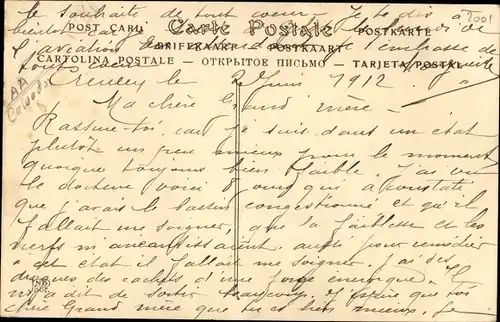 le souhaite de tout coeur. Je te dis à
bientôt
POST CARD Carte Postale POSTKARTE
BRIEFKAART POSTKAART
l'aviation embrasse de
CARTOLINA POSTALE — ОТКРЫТОЕ ПИСЬМО — TARJETA POSTAL
Creuley le 2 Juin 1912
Ma chère Grand mère —
Rassure-toi, car je suis dans un état
plutôt un peu mieux pour le moment
quoique toujours bien faible. J'ai vu
le docteur voici 8 jours qui a constaté
que j'avais le congestionné et qu'il
fallait me soigner, que la faiblesse et les
nerfs m'anéantissaient aussi pour remédier
à cet état il fallait me soigner. J'ai des
drogues des cachets d'une force énergique. Il
m'a dit de sortir beaucoup. J'espère que toi
chère Grand mère que tu es bien mieux, je
2001
AA
Calvados
ND
PHOT